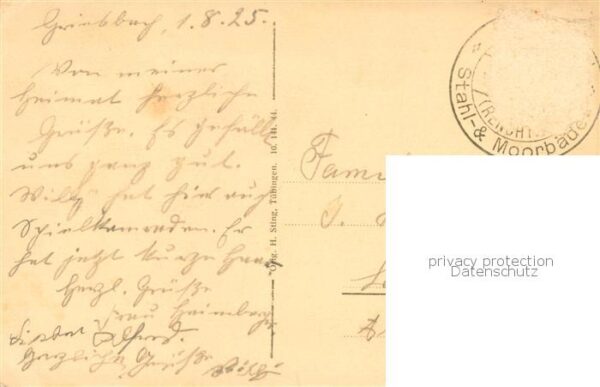 Griesbach, 1.8.25.
Von meiner
Heimat herzliche
Grüße. Es gefällt
uns ganz gut.
Willy hat hier auch
Spielkameraden. Er
hat jetzt kurze Haar
Herzl. Grüße
Frau
Herzliche Grüße
Willy
Orig. H. Sting, Tübingen. 10 144. 44
(RENCHT
Stahl- & Moorbäder
Fami
privacy protection
Datenschutz